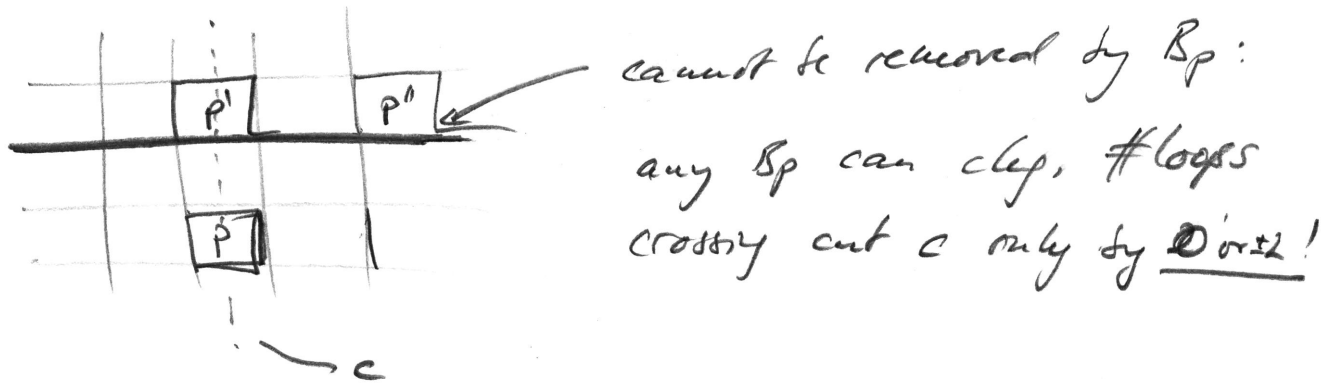 cannot be removed by Bp:
p' p''
any Bp can chg. #loops
crossing cut c only by 0 or ±2!
p
c